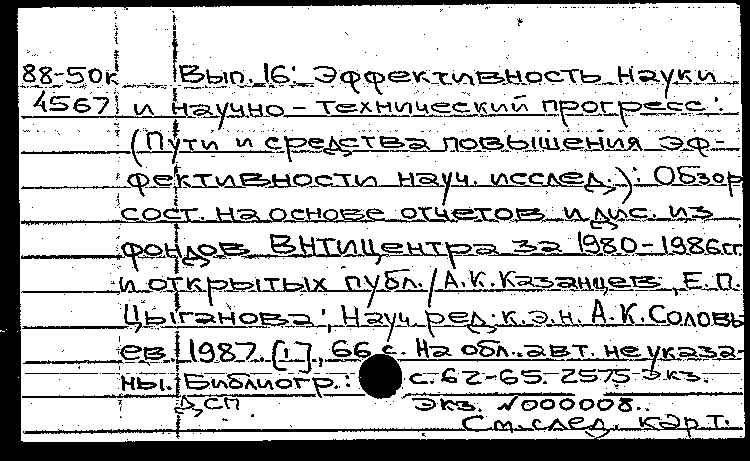 88-50к Вып. 16: Эффективность науки
4567 и научно-технический прогресс:
(Пути и средства повышения эф-
фективности науч. исслед.): Обзор
сост. на основе отчетов и дис. из
фондов ВНТИЦентра за 1980-1986гг
и открытых публ. / А.К. Казанцев, Е.П.
Цыганова; Науч. ред. к.э.н. А.К. Соловь-
ев 1987. [1], 66 с. На обл. авт. не указа-
ны. Библиогр.: с. 62-65. 2575 экз.
ДСП Экз. №000008.
См. след. карт.